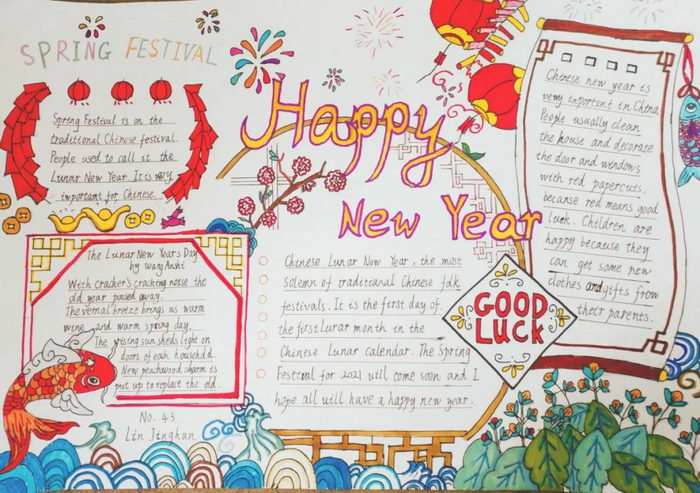 SPRING FESTIVAL
Spring Festival is on the
traditional Chinese festival.
People used to call it the
Lunar New Year. It is very
important for Chinese.
Happy
New Year
The Lunar New Year's Day
by Wang Anshi
With Cracker's cracking noise the
old year passed away.
The vernal breeze brings us warm
wine and warm spring day.
The rising sun sheds light on
doors of each household.
New peachwood charm is
put up to replace the old.
No. 43
Lin Jinghan
Chinese Lunar New Year, the most
solemn of traditional Chinese folk
festivals. It is the first day of
the first lunar month in the
Chinese Lunar calendar. The Spring
Festival for 2021 will come soon and I
hope all will have a happy new year.
GOOD
LUCK
Chinese new year is
very important in China.
People usually clean
the house and decorate
the door and windows
with red papercuts,
because red means good
luck. Children are
happy because they
can get some new
clothes and gifts from
their parents.